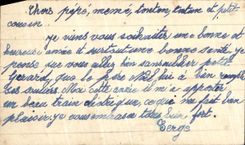 Chers pépé, mémé, tonton, tantine et petit
cousin
je viens vous souhaiter une bonne et
heureuse année et surtout une bonne santé je
pense que vous allez bien ainsi que petit
Gérard, que le père Noël lui a bien rempli
ses souliers Moi cette année il m'a apporté
un beau train électrique, ce qui m'a fait bien
plaisir, je vous embrasse tous bien fort.
Serge